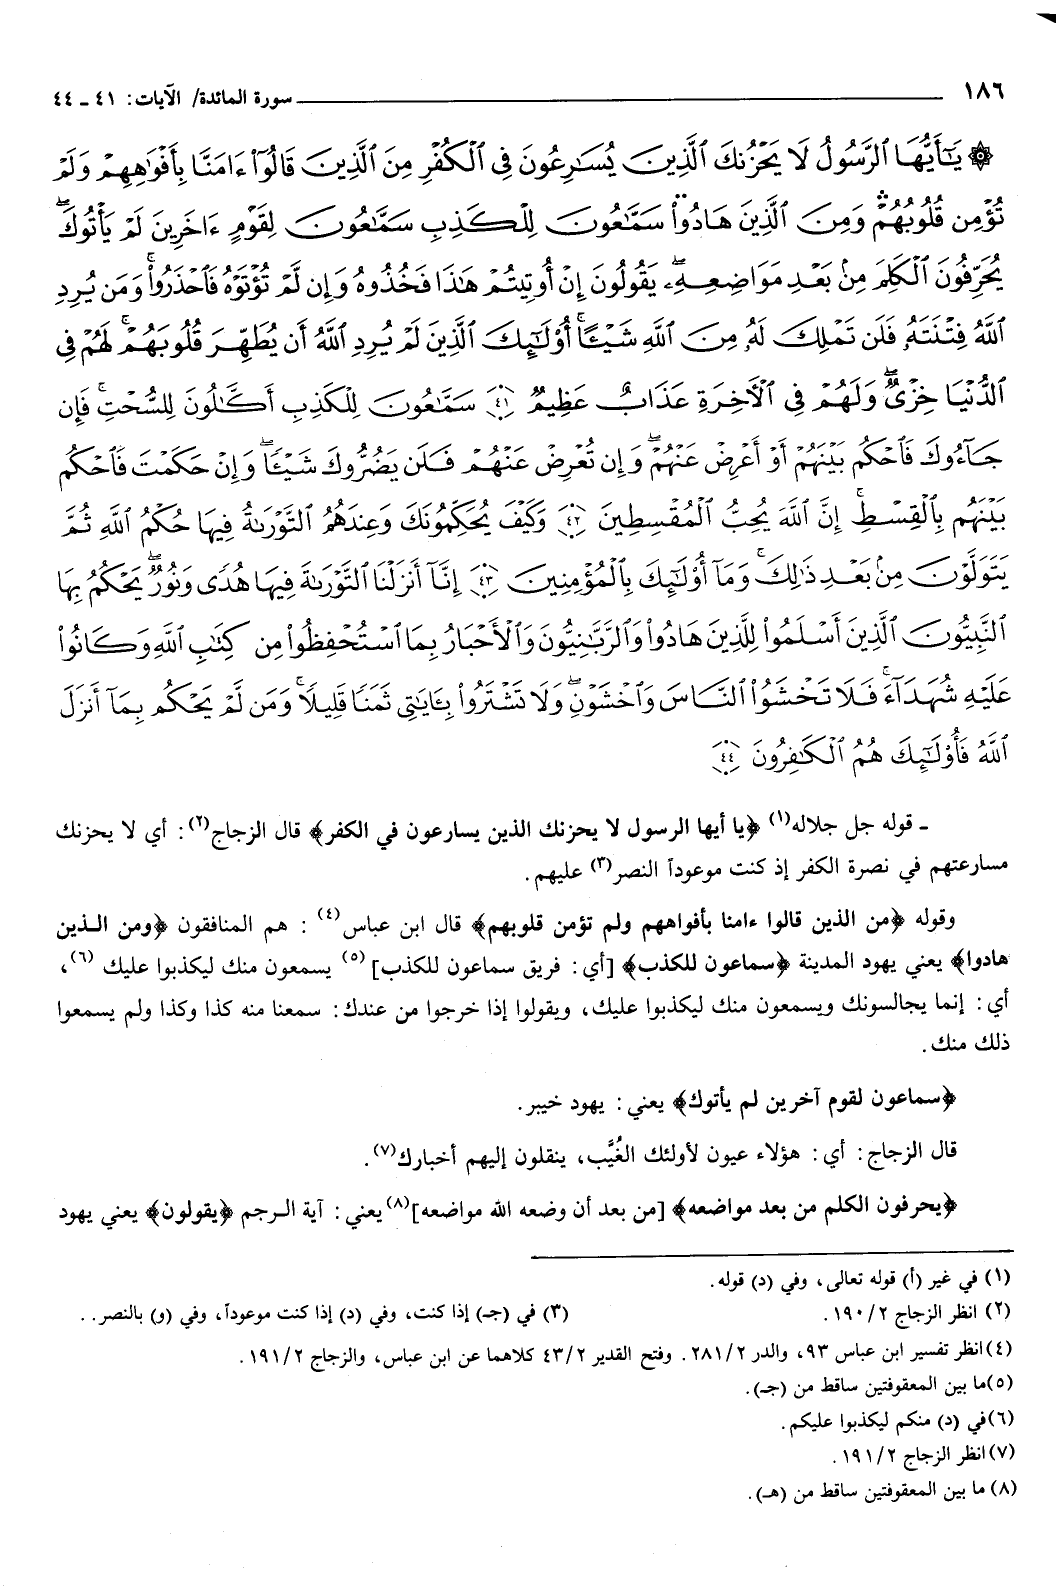 ١٨٦ سورة المائدة/ الآيات: ٤١ ـ ٤٤
۞ يَٰٓأَيُّهَا ٱلرَّسُولُ لَا يَحْزُنكَ ٱلَّذِينَ يُسَٰرِعُونَ فِى ٱلْكُفْرِ مِنَ ٱلَّذِينَ قَالُوٓا۟ ءَامَنَّا بِأَفْوَٰهِهِمْ وَلَمْ
تُؤْمِن قُلُوبُهُمْ ۛ وَمِنَ ٱلَّذِينَ هَادُوا۟ ۛ سَمَّٰعُونَ لِلْكَذِبِ سَمَّٰعُونَ لِقَوْمٍ ءَاخَرِينَ لَمْ يَأْتُوكَ ۖ
يُحَرِّفُونَ ٱلْكَلِمَ مِنۢ بَعْدِ مَوَاضِعِهِۦ ۖ يَقُولُونَ إِنْ أُوتِيتُمْ هَٰذَا فَخُذُوهُ وَإِن لَّمْ تُؤْتَوْهُ فَٱحْذَرُوا۟ ۚ وَمَن يُرِدِ
ٱللَّهُ فِتْنَتَهُۥ فَلَن تَمْلِكَ لَهُۥ مِنَ ٱللَّهِ شَيْـًٔا ۚ أُو۟لَٰٓئِكَ ٱلَّذِينَ لَمْ يُرِدِ ٱللَّهُ أَن يُطَهِّرَ قُلُوبَهُمْ ۚ لَهُمْ فِى
ٱلدُّنْيَا خِزْىٌ ۖ وَلَهُمْ فِى ٱلْءَاخِرَةِ عَذَابٌ عَظِيمٌ ٤١ سَمَّٰعُونَ لِلْكَذِبِ أَكَّٰلُونَ لِلسُّحْتِ ۚ فَإِن
جَآءُوكَ فَٱحْكُم بَيْنَهُمْ أَوْ أَعْرِضْ عَنْهُمْ ۖ وَإِن تُعْرِضْ عَنْهُمْ فَلَن يَضُرُّوكَ شَيْـًٔا ۖ وَإِنْ حَكَمْتَ فَٱحْكُم
بَيْنَهُم بِٱلْقِسْطِ ۚ إِنَّ ٱللَّهَ يُحِبُّ ٱلْمُقْسِطِينَ ٤٢ وَكَيْفَ يُحَكِّمُونَكَ وَعِندَهُمُ ٱلتَّوْرَىٰةُ فِيهَا حُكْمُ ٱللَّهِ ثُمَّ
يَتَوَلَّوْنَ مِنۢ بَعْدِ ذَٰلِكَ ۚ وَمَآ أُو۟لَٰٓئِكَ بِٱلْمُؤْمِنِينَ ٤٣ إِنَّآ أَنزَلْنَا ٱلتَّوْرَىٰةَ فِيهَا هُدًى وَنُورٌ ۚ يَحْكُمُ بِهَا
ٱلنَّبِيُّونَ ٱلَّذِينَ أَسْلَمُوا۟ لِلَّذِينَ هَادُوا۟ وَٱلرَّبَّٰنِيُّونَ وَٱلْأَحْبَارُ بِمَا ٱسْتُحْفِظُوا۟ مِن كِتَٰبِ ٱللَّهِ وَكَانُوا۟
عَلَيْهِ شُهَدَآءَ ۚ فَلَا تَخْشَوُا۟ ٱلنَّاسَ وَٱخْشَوْنِ ۖ وَلَا تَشْتَرُوا۟ بِـَٔايَٰتِى ثَمَنًا قَلِيلًا ۚ وَمَن لَّمْ يَحْكُم بِمَآ أَنزَلَ
ٱللَّهُ فَأُو۟لَٰٓئِكَ هُمُ ٱلْكَٰفِرُونَ ٤٤
ـ قوله جل جلاله(١) ﴿يا أيها الرسول لا يحزنك الذين يسارعون في الكفر﴾ قال الزجاج(٢): أي لا يحزنك
مسارعتهم في نصرة الكفر إذ كنت موعوداً النصر(٣) عليهم.
وقوله ﴿من الذين قالوا ءامنا بأفواههم ولم تؤمن قلوبهم﴾ قال ابن عباس(٤): هم المنافقون ﴿ومن الـذين
هادوا﴾ يعني يهود المدينة ﴿سماعون للكذب﴾ [أي: فريق سماعون للكذب](٥) يسمعون منك ليكذبوا عليك(٦)،
أي: إنما يجالسونك ويسمعون منك ليكذبوا عليك، ويقولوا إذا خرجوا من عندك: سمعنا منه كذا وكذا ولم يسمعوا
ذلك منك.
﴿سماعون لقوم آخرين لم يأتوك﴾ يعني: يهود خيبر.
قال الزجاج: أي: هؤلاء عيون لأولئك الغُيَّب، ينقلون إليهم أخبارك(٧).
﴿يحرفون الكلم من بعد مواضعه﴾ [من بعد أن وضعه الله مواضعه](٨) يعني: آية الـرجم ﴿يقولون﴾ يعني يهود
(١) في غير (أ) قوله تعالى، وفي (د) قوله.
(٢) انظر الزجاج ٢/ ١٩٠. (٣) في (جـ) إذا كنت، وفي (د) إذا كنت موعوداً، وفي (و) بالنصر..
(٤) انظر تفسير ابن عباس ٩٣، والدر ٢/ ٢٨١. وفتح القدير ٢/ ٤٣ كلاهما عن ابن عباس، والزجاج ٢/ ١٩١.
(٥) ما بين المعقوفتين ساقط من (جـ).
(٦) في (د) منكم ليكذبوا عليكم.
(٧) انظر الزجاج ٢/ ١٩١.
(٨) ما بين المعقوفتين ساقط من (هـ).